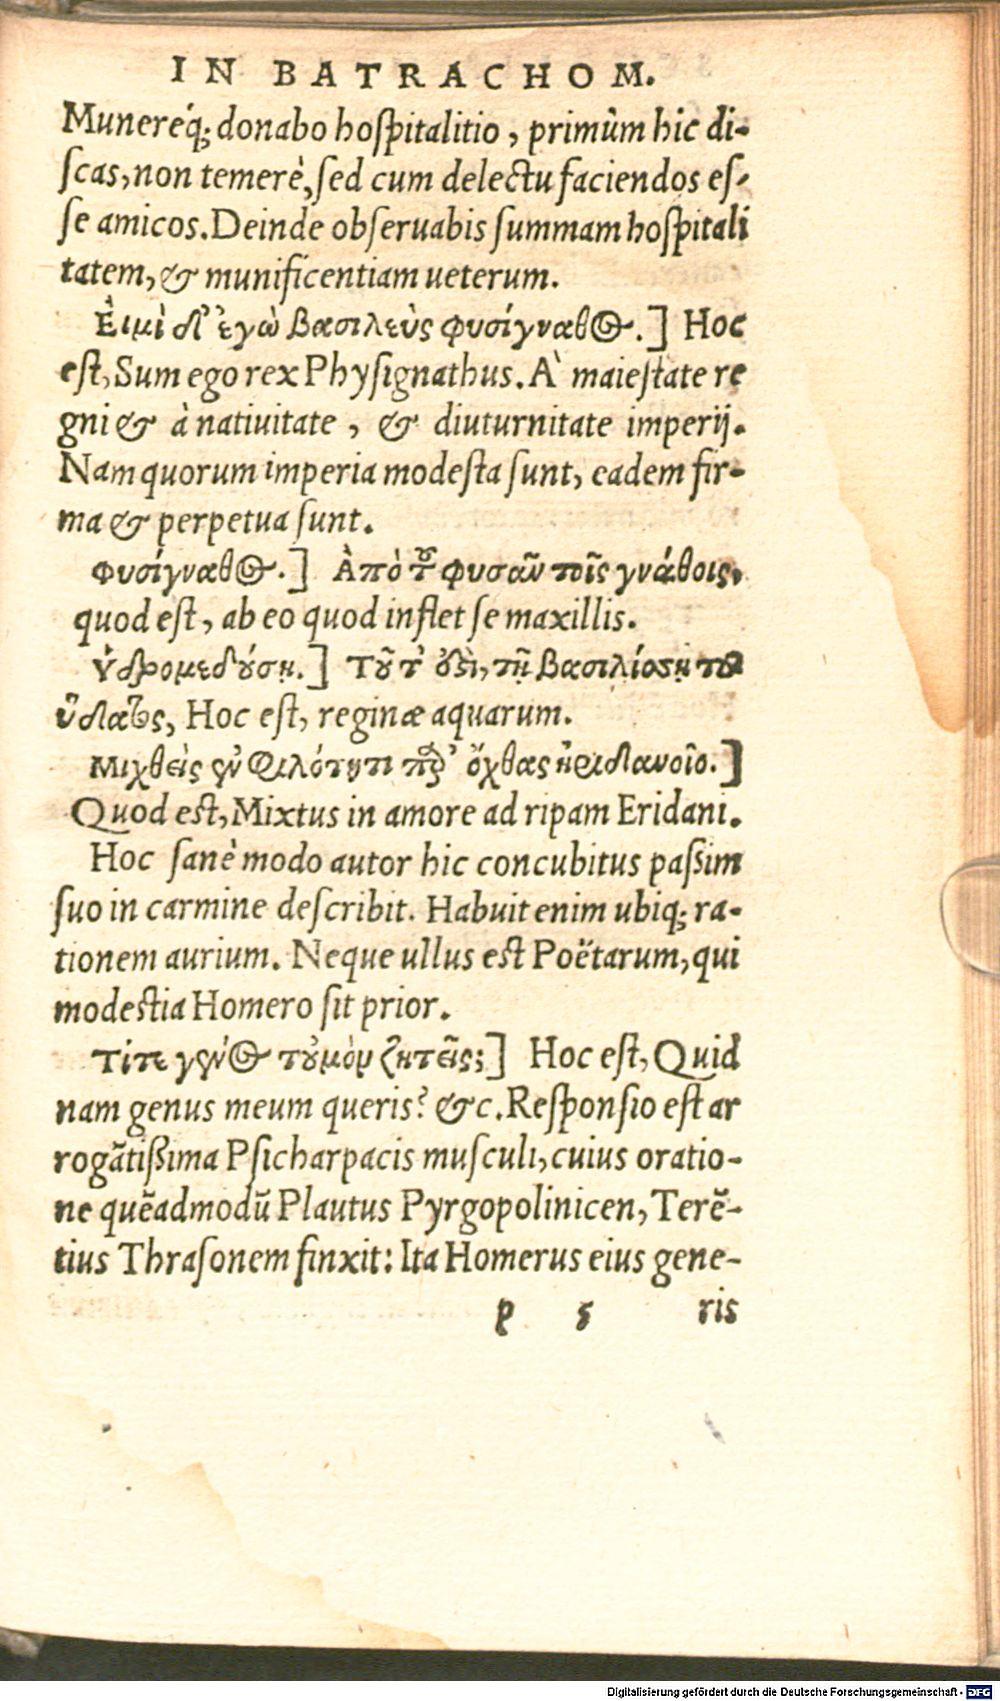 IN BATRACHOM.
Munereq́; donabo hoſpitalitio, primùm hic di-
ſcas, non temerè, ſed cum delectu faciendos eſ-
ſe amicos. Deinde obſeruabis ſummam hoſpitali
tatem, & munificentiam ueterum.
Εἰμὶ δ' ἐγὼ βασιλεὺς φυσίγναθος.] Hoc
eſt, Sum ego rex Phyſignathus. À maieſtate re
gni & à natiuitate, & diuturnitate imperij.
Nam quorum imperia modeſta ſunt, eadem fir-
ma & perpetua ſunt.
φυσίγναθος.] Ἀπὸ τοῦ φυσᾶν τοῖς γνάθοις,
quod eſt, ab eo quod inflet ſe maxillis.
ὑδρομεδούσῃ.] τῇ βασιλίσσῃ τοῦ
ὕδατος, Hoc eſt, reginæ aquarum.
Μιχθεὶς ἐν φιλότητι παρ' ὄχθας ἠριδανοῖο.]
Quod eſt, Mixtus in amore ad ripam Eridani.
Hoc ſanè modo autor hic concubitus paſſim
ſuo in carmine deſcribit. Habuit enim ubiq; ra-
tionem aurium. Neque ullus eſt Poëtarum, qui
modeſtia Homero ſit prior.
Τίπτε γένος τοὐμὸν ζητεῖς;] Hoc eſt, Quid
nam genus meum queris? &c. Reſponſio eſt ar
rogãtißima Pſicharpacis muſculi, cuius oratio-
ne quẽadmodũ Plautus Pyrgopolinicen, Terẽ-
tius Thraſonem finxit: Ita Homerus eius gene-
p 5 ris
Digitalisierung gefördert durch die Deutsche Forschungsgemeinschaft - DFG